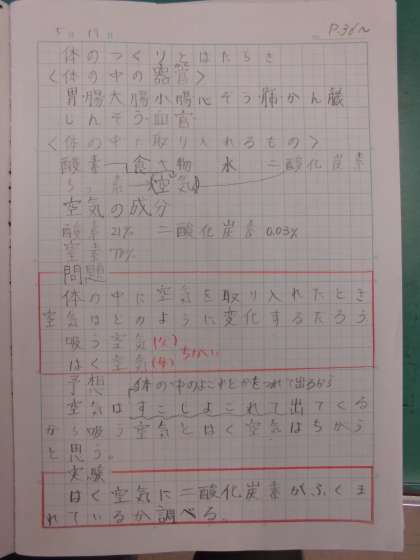 5月17日 P.36〜
体のつくりとはたらき
〈体の中の器官〉
胃腸大腸小腸心ぞう肺かん臓
じんぞう血管
〈体の中に取り入れるもの〉
酸素 食べ物 水 二酸化炭素
ちっ素 空気
空気の成分
酸素21% 二酸化炭素0.03%
窒素78%
問題
体の中に空気を取り入れたとき
空気はどのように変化するだろう
吸う空気 ちがい
はく空気
予想 体の中のよごれとかをつれて出るから
空気はすこしよごれて出てくる
から吸う空気とはく空気はちがう
と思う。
実験
はく空気に二酸化炭素がふくま
れているか調べる。